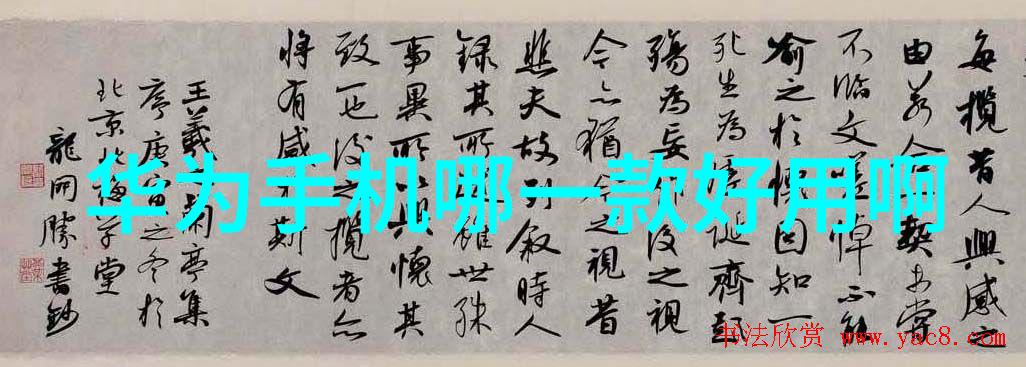 每揽昔人興感之
由若合一契未嘗
不臨文嗟悼不能
喻之於懷固知一
死生為虛誕齊彭
殤為妄作後之視
今亦猶今之視昔
悲夫故列叙時人
錄其所述雖世殊
事異所以興懷其
致一也後之攬者亦
將有感於斯文
王羲之蘭亭集
序庚寅之冬於
北京北學堂
龍開勝書鈔
华为手机哪一款好用啊
书法欣赏
www.yac8.com